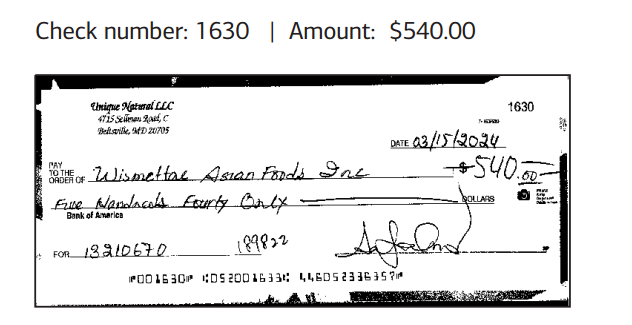 Check number: 1630 | Amount: $540.00
Unique Natural LLC
4715 Sellman Road, C
Beltsville, MD 20705
1630
DATE 03/15/2024
PAY
TO THE
ORDER OF Wismettac Asian Foods Inc $540.00
Five Handreds Fourty Only DOLLARS
Bank of America
FOR 13210670 189822
⑈001630⑈ ⑆052001633⑆ 446052336357⑈